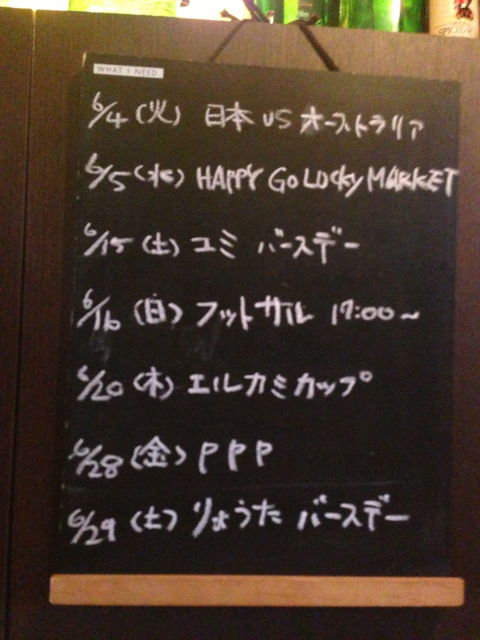 WHAT I NEED
6/4 (火) 日本 US オーストラリア
6/5 (水) HAPPY GO LUCKY MARKET
6/15 (土) ユミ バースデー
6/16 (日) フットサル 17:00~
6/20 (木) エルカミカップ
6/28 (金) PPP
6/29 (土) りょうた バースデー